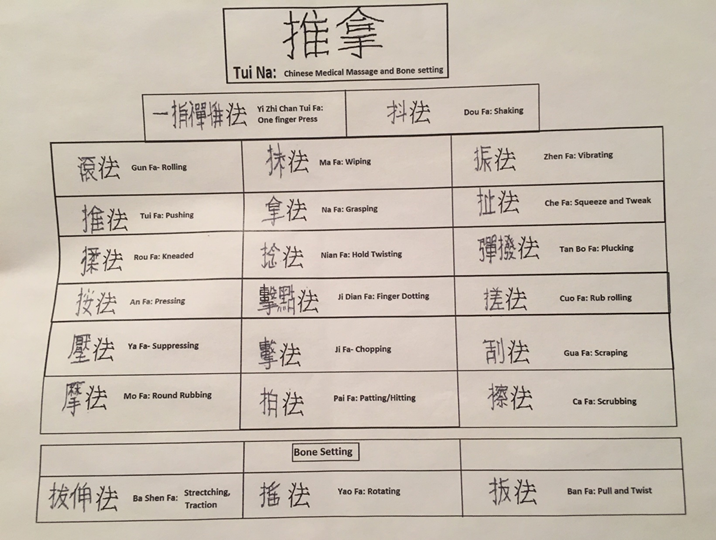 推拿
Tui Na: Chinese Medical Massage and Bone setting
一指禪推法 Yi Zhi Chan Tui Fa:
One finger Press
抖法 Dou Fa: Shaking
滾法 Gun Fa- Rolling
抹法 Ma Fa: Wiping
振法 Zhen Fa: Vibrating
推法 Tui Fa: Pushing
拿法 Na Fa: Grasping
扯法 Che Fa: Squeeze and Tweak
揉法 Rou Fa: Kneaded
捻法 Nian Fa: Hold Twisting
彈撥法 Tan Bo Fa: Plucking
按法 An Fa: Pressing
擊點法 Ji Dian Fa: Finger Dotting
搓法 Cuo Fa: Rub rolling
壓法 Ya Fa- Suppressing
擊法 Ji Fa- Chopping
刮法 Gua Fa: Scraping
摩法 Mo Fa: Round Rubbing
拍法 Pai Fa: Patting/Hitting
擦法 Ca Fa: Scrubbing
Bone Setting
拔伸法 Ba Shen Fa: Strectching,
Traction
搖法 Yao Fa: Rotating
扳法 Ban Fa: Pull and Twist